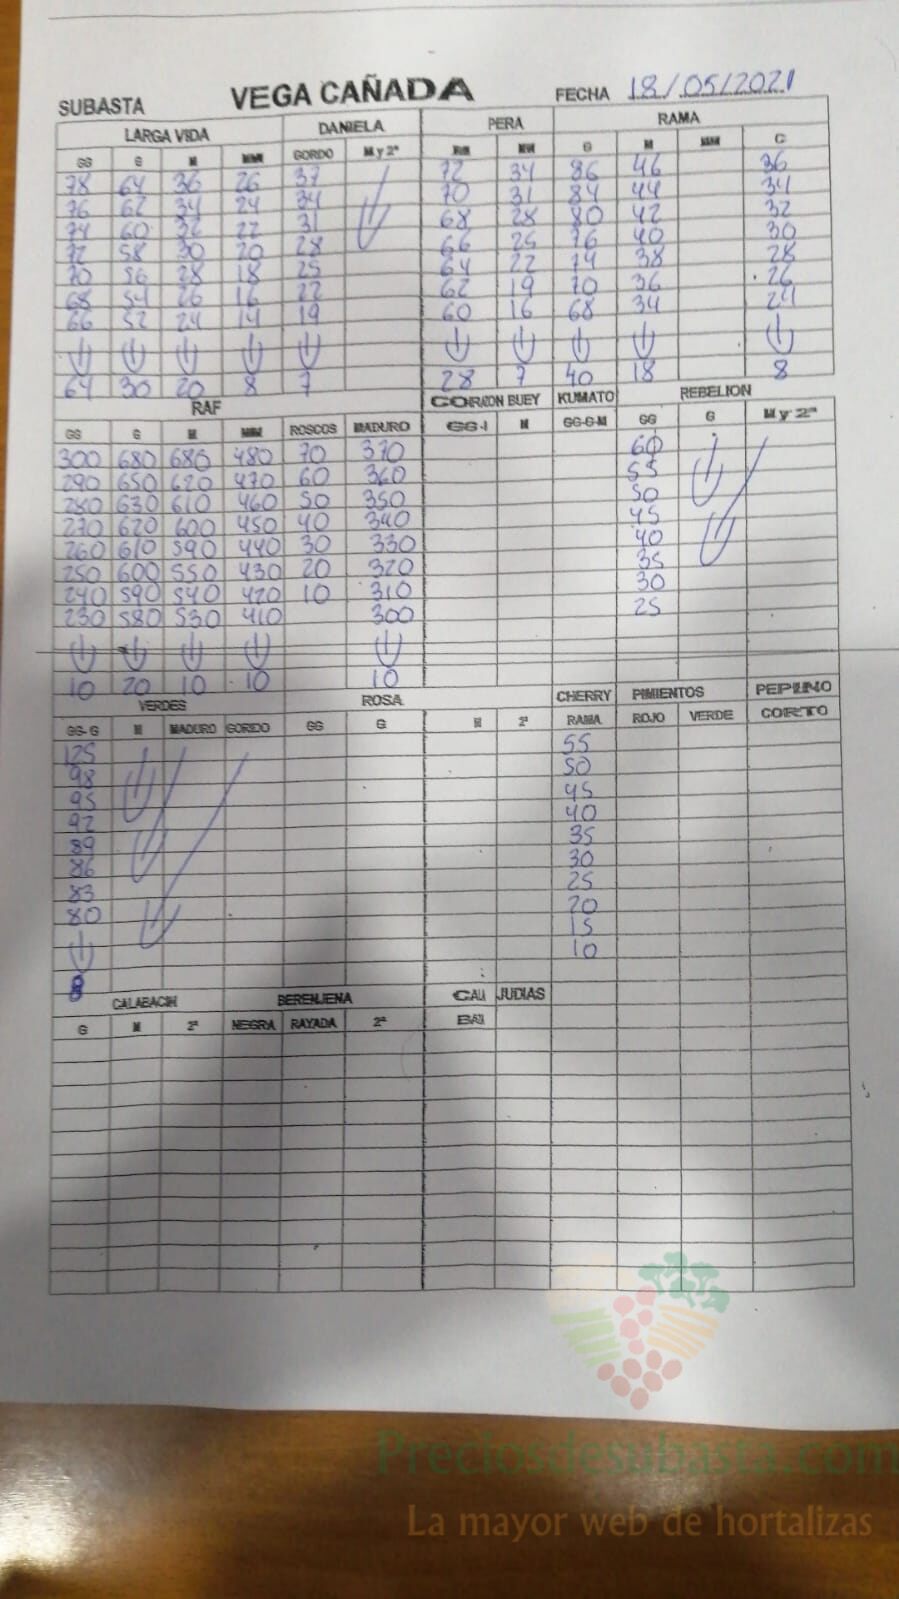 SUBASTA VEGA CAÑADA FECHA 18/05/2021
LARGA VIDA DANIELA PERA RAMA
GG G M MM GORDO M y 2ª M MM G M MM C
78 64 36 26 37 72 34 86 46 36
76 62 34 24 34 70 31 84 44 34
74 60 32 22 31 68 28 80 42 32
72 58 30 20 28 66 25 76 40 30
70 56 28 18 25 64 22 74 38 28
68 54 26 16 22 62 19 70 36 26
66 52 24 14 19 60 16 68 34 24
64 30 20 8 7 28 7 40 18 8
RAF CORAZON BUEY KUMATO REBELION
GG G M MM ROSCOS MADURO GG-I M GG-G-M GG G M y 2ª
300 680 680 480 70 370 60
290 650 620 470 60 360 55
280 630 610 460 50 350 50
270 620 600 450 40 340 45
260 610 590 440 30 330 40
250 600 550 430 20 320 35
240 590 540 420 10 310 30
230 580 530 410 300 25
10 20 10 10 10
VERDES ROSA CHERRY PIMIENTOS PEPINO
GG-G M MADURO GORDO GG G M 2ª RAMA ROJO VERDE CORTO
125 55
98 50
95 45
92 40
89 35
86 30
83 25
80 20
15
10
8
CALABACIN BERENJENA CALI JUDIAS
G M 2ª NEGRA RAYADA 2ª
Preciosdesubasta.com
La mayor web de hortalizas